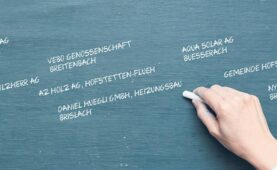 VEBO GENOSSENSCHAFT
BREITENBACH
AQUA SOLAR AG
BUESSERACH
AZ HOLZ AG, HOFSTETTEN-FLUEH
GEMEINDE HOFS
DANIEL HUEGLI GMBH, HEIZUNGSBAU
BRISLACH
NY